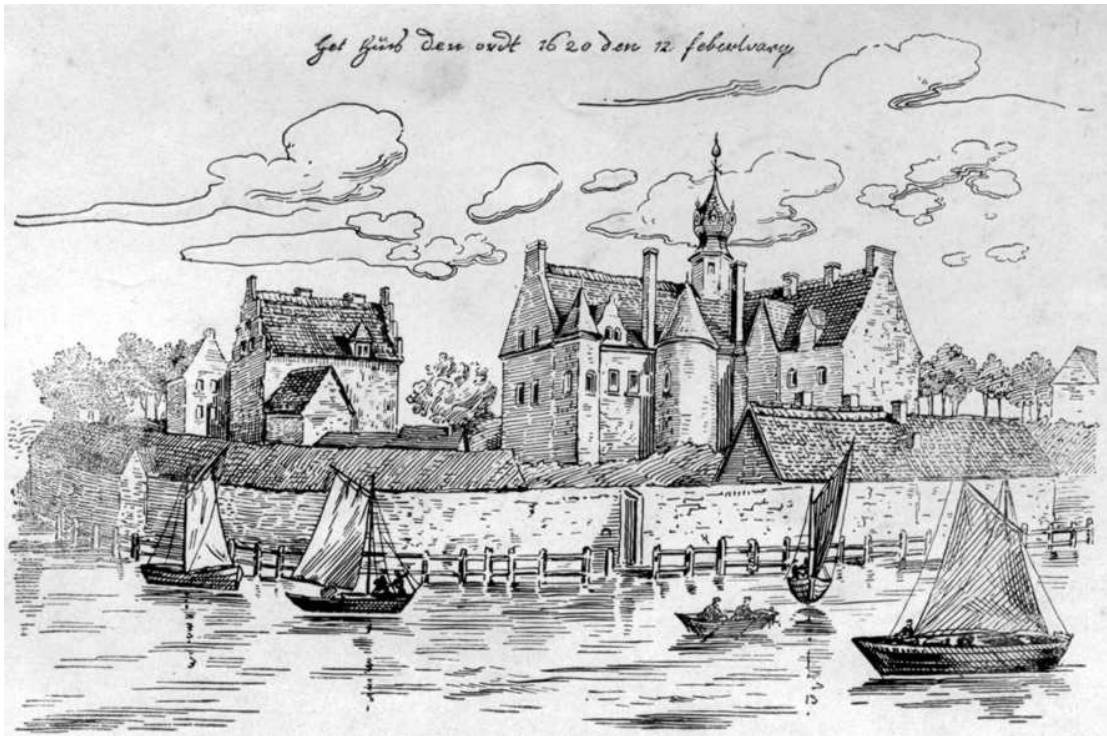 Het Huis den ordt 1620 den 12 feberwary